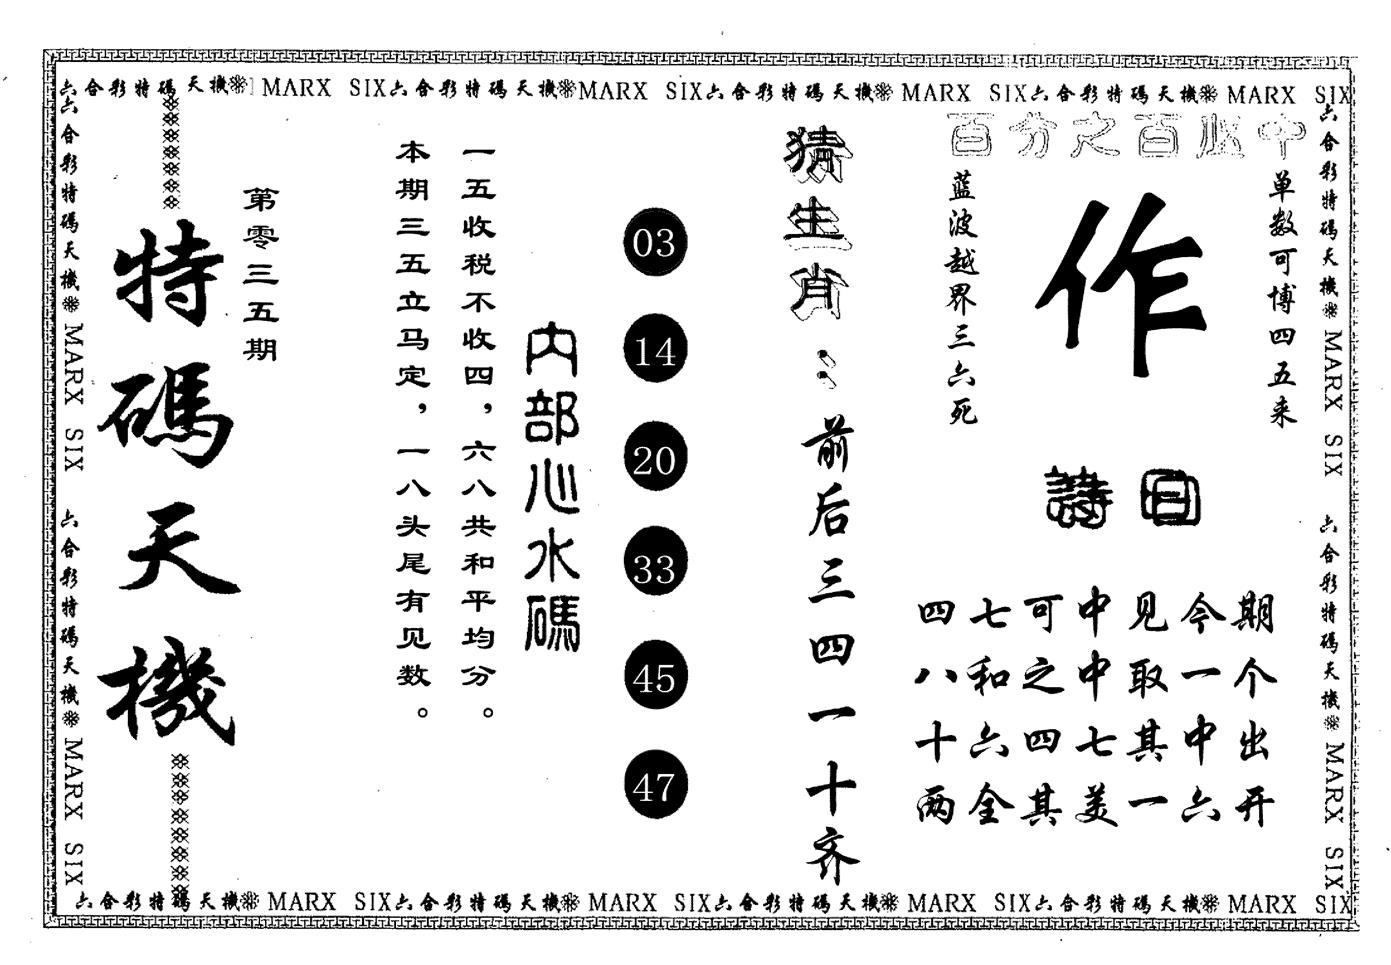 六合彩特碼天機 MARX SIX六合彩特碼天機MARX SIX六合彩特碼天機 MARX SIX六合彩特碼天機 MARX SIX
六合彩特碼天機 MARX SIX 六合彩特碼天機 MARX SIX
特碼天機
第零三五期
本期三五立马定，一八头尾有见数。
一五收税不收四，六八共和平均分。
内部心水碼
03
14
20
33
45
47
猜生肖：前后三四一十齐
百分之百必中
单数可博四五来
作
蓝波越界三六死
詩曰
四七可中见今期
八和之中取一个
十六四七其中出
两全其美一六开
六合彩特碼天機 MARX SIX 六合彩特碼天機 MARX SIX
六合彩特碼天機 MARX SIX六合彩特碼天機 MARX SIX六合彩特碼天機 MARX SIX六合彩特碼天機 MARX SIX